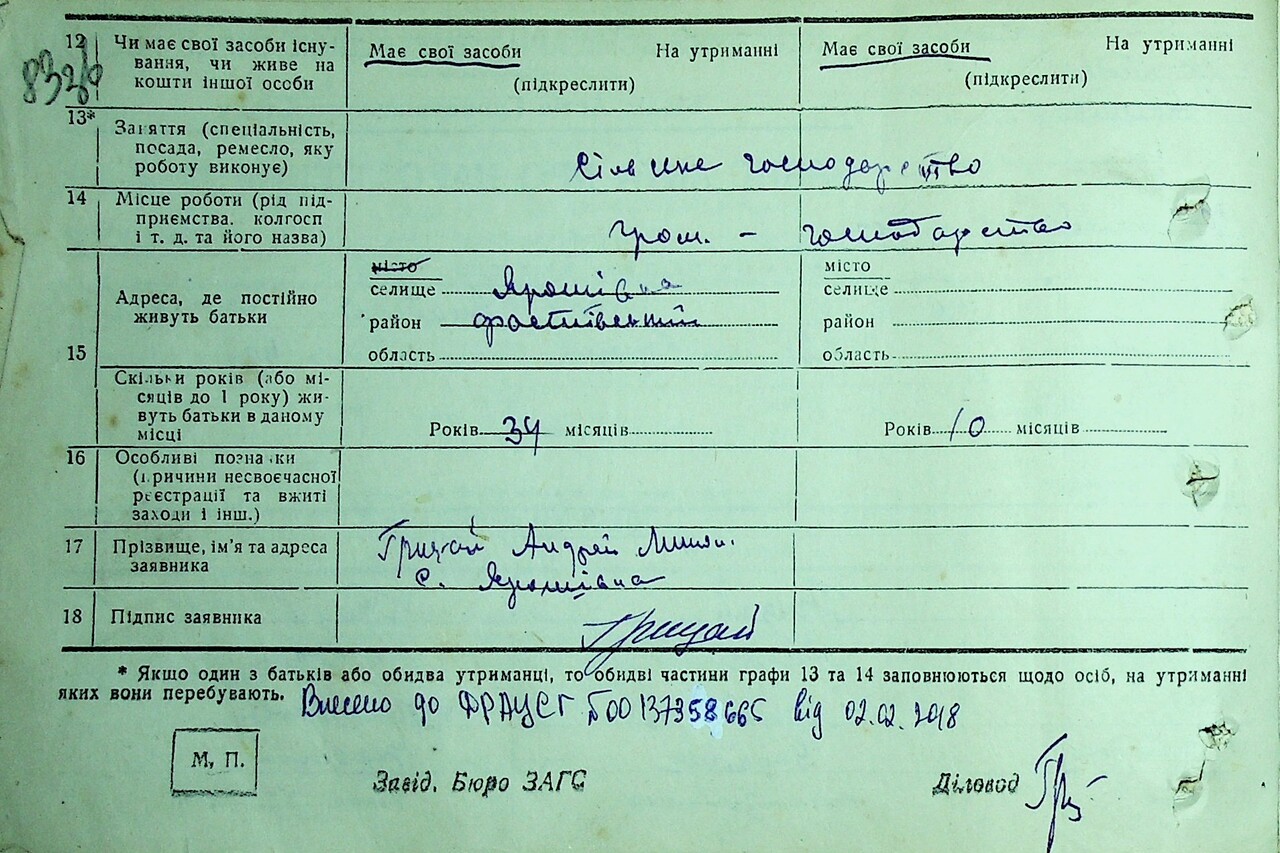 12 Чи має свої засоби існу-
вання, чи живе на
кошти іншої особи
Має свої засоби На утриманні
(підкреслити)
Має свої засоби На утриманні
(підкреслити)
13* Заняття (спеціальність,
посада, ремесло, яку
роботу виконує)
Сільське господарство
14 Місце роботи (рід під-
приємства, колгосп
і т. д. та його назва)
гром. - господарство
15 Адреса, де постійно
живуть батьки
місто
селище Ярошівка
район Фастівський
область
місто
селище
район
область
Скільки років (або мі-
сяців до 1 року) жи-
вуть батьки в даному
місці
Років 34 місяців
Років 10 місяців
16 Особливі позначки
(причини несвоєчасної
реєстрації та вжиті
заходи і інш.)
17 Прізвище, ім'я та адреса
заявника
Грицай Андрей
с. Ярошівка
18 Підпис заявника
Грицай
* Якщо один з батьків або обидва утриманці, то обидві частини графи 13 та 14 заповнюються щодо осіб, на утриманні
яких вони перебувають.
Внесено до ДРАЦСГ 00137358665 від 02.02.2018
М. П.
Завід. Бюро ЗАГС
Діловод